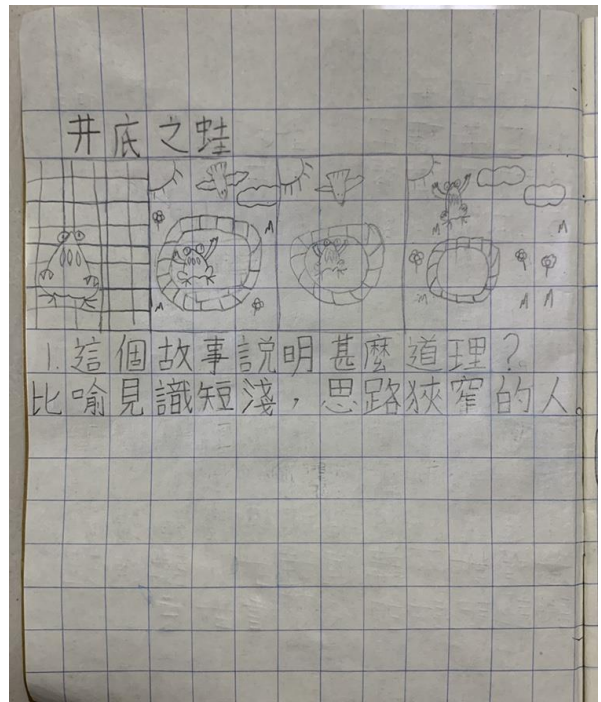 井底之蛙
1.這個故事説明甚麼道理?
比喻見識短淺,思路狹窄的人。